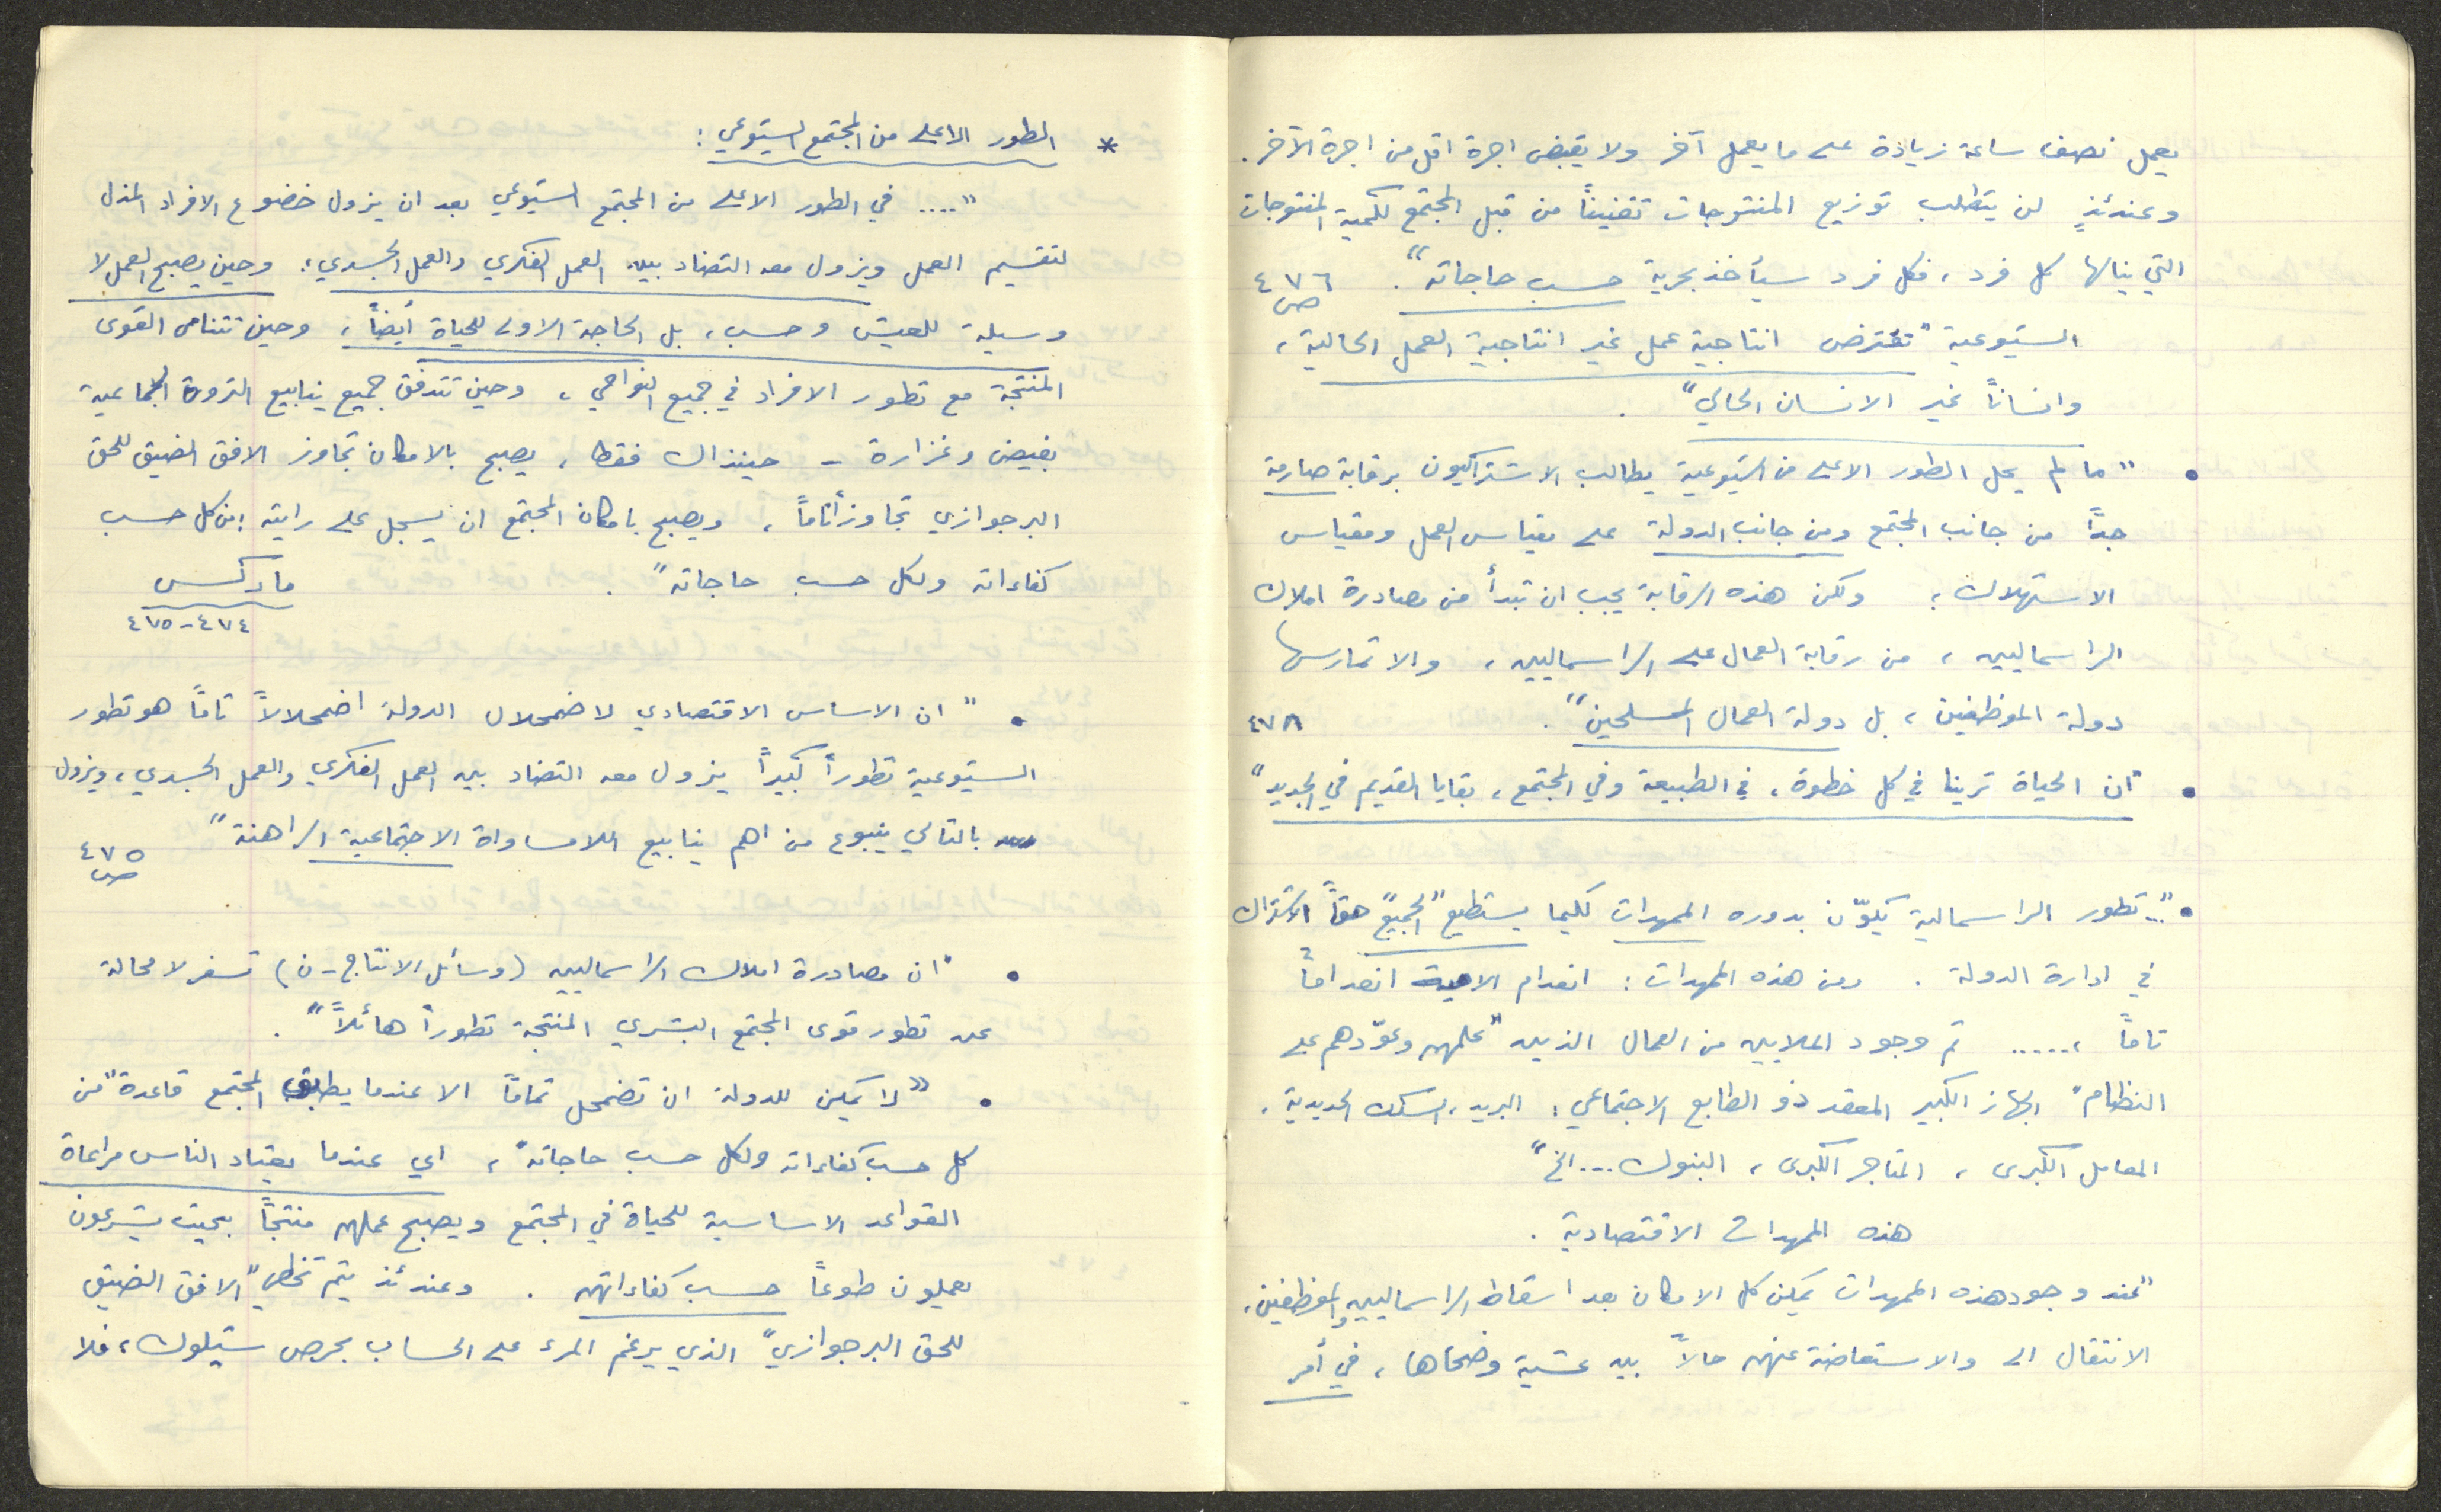 * الطور الاعلى من المجتمع الشيوعي :
".... في الطور الاعلى من المجتمع الشيوعي بعد ان يزول خضوع الافراد المذل
لتقسيم العمل ويزول معه التضاد بين العمل الفكري والعمل الجسدي؛ وحين يصبح العمل لا
وسيلة للعيش وحسب، بل الحاجة الاولى للحياة أيضاً، وحين تتنامى القوى
المنتجة مع تطور الافراد في جميع النواحي، وحين تتدفق جميع ينابيع الثروة الجماعية
بفيض وغزارة - حينذاك فقط، يصبح بالامكان تجاوز الافق الضيق للحق
البرجوازي تجاوزاً تاماً، ويصبح بامكان المجتمع ان يسجل على رايته: من كل حسب
كفاءاته ولكل حسب حاجاته". ماركس
٤٧٤-٤٧٥
• "ان الاساس الاقتصادي لاضمحلال الدولة اضمحلالاً تاماً هو تطور
الشيوعية تطوراً كبيراً يزول معه التضاد بين العمل الفكري والعمل الجسدي، ويزول
بالتالي ينبوع من اهم ينابيع اللامساواة الاجتماعية الراهنة" ص ٤٧٥
• "ان مصادرة املاك الراسماليين (وسائل الانتاج - ن) تسفر لا محالة
عن تطور قوى المجتمع البشري المنتجة تطوراً هائلاً".
• "لا يمكن للدولة ان تضمحل تماماً الا عندما يطبق المجتمع قاعدة "من
كل حسب كفاءاته ولكل حسب حاجاته"، اي عندما يعتاد الناس مراعاة
القواعد الاساسية للحياة في المجتمع ويصبح عملهم منتجاً بحيث يشرعون
يعملون طوعاً حسب كفاءاتهم. وعندئذ يتم تخطي "الافق الضيق
للحق البرجوازي" الذي يرغم المرء على الحساب بحرص شيلوك، فلا
يعمل نصف ساعة زيادة على ما يعمل آخر ولا يقبض اجرة اقل من اجرة الآخر.
وعندئذٍ لن يتطلب توزيع المنتوجات تقنيناً من قبل المجتمع لكمية المنتوجات
التي ينالها كل فرد، فكل فرد سيأخذ بحرية حسب حاجاته". ص ٤٧٦
الشيوعية "تفترض انتاجية عمل غير انتاجية العمل الحالية،
وانساناً غير الانسان الحالي".
• "ما لم يحل الطور الاعلى من الشيوعية يطالب الاشتراكيون برقابة صارمة
جداً من جانب المجتمع ومن جانب الدولة على مقياس العمل ومقياس
الاستهلاك؛ ولكن هذه الرقابة يجب ان تبدأ من مصادرة املاك
الراسماليين، من رقابة العمال على الراسماليين، والا تمارسها
دولة الموظفين، بل دولة العمال المسلحين". ٤٧٨
• "ان الحياة ترينا في كل خطوة، في الطبيعة وفي المجتمع، بقايا القديم في الجديد"
• ".. تطور الراسمالية يكوّن بدوره الممهدات لكيما يستطيع "الجميع" حقاً الاشتراك
في ادارة الدولة. ومن هذه الممهدات: انعدام الامية انعداماً
تاماً ،..... ثم وجود الملايين من العمال الذين "علمهم وعوّدهم على
النظام" الجهاز الكبير المعقد ذو الطابع الاجتماعي: البريد، السكك الحديدية،
المعامل الكبرى، المتاجر الكبرى، البنوك... الخ"
هذه الممهدات الاقتصادية.
"عند وجود هذه الممهدات يمكن كل الامكان بعد اسقاط الراسماليين والموظفين،
الانتقال الى والاستعاضة عنهم حالاً بين عشية وضحاها، في أمر